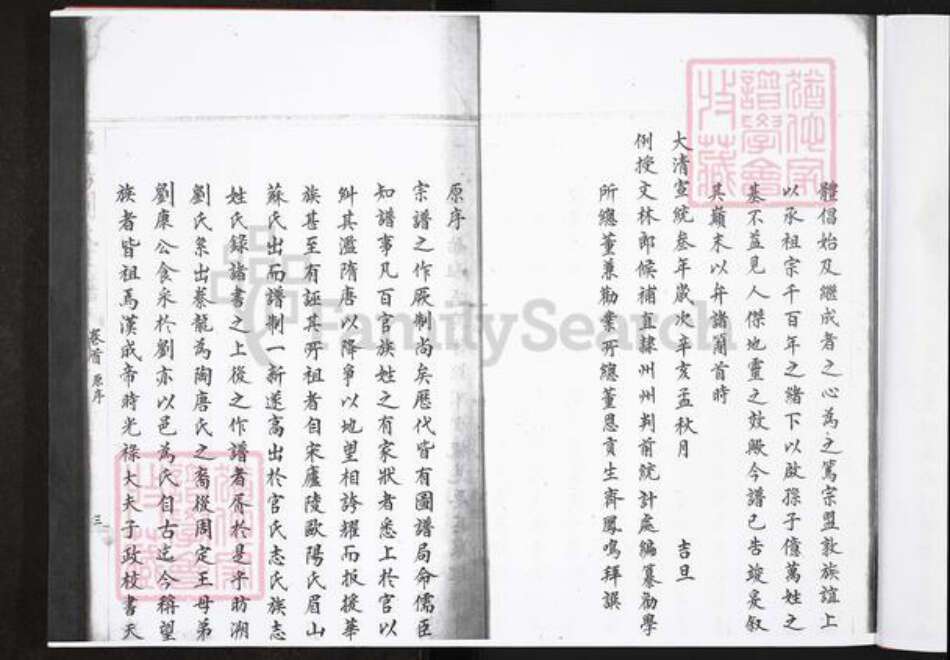 體倡始及繼成者之心為之篤宗盟敦族誼上
以承祖宗千百年之緒下以啟孫子億萬姓之
基不益見人傑地靈之效歟今譜已告竣爰叙
其巔末以弁諸簡首時
大清宣統叁年歲次辛亥孟秋月 吉旦
例授文林郎候補直隸州州判前統計處編纂勸學
所總董兼勸業所總董恩貢生齊鳳鳴拜譔
原序
宗譜之作厥制尚矣歷代皆有圖譜局命儒臣
知譜事凡百官族姓之有家狀者悉上於官以
糾其濫隋唐以降爭以地望相誇耀而扳援華
族甚至有誣其所祖者自宋廬陵歐陽氏眉山
蘇氏出而譜制一新遂高出於官氏志氏族志
姓氏錄諸書之上後之作譜者胥於是乎昉溯
劉氏系出豢龍為陶唐氏之裔後周定王母弟
劉康公食采於劉亦以邑為氏自古迄今稱望
族者皆祖焉漢成帝時光祿大夫子政校書天
卷首 原序
三
FamilySearch